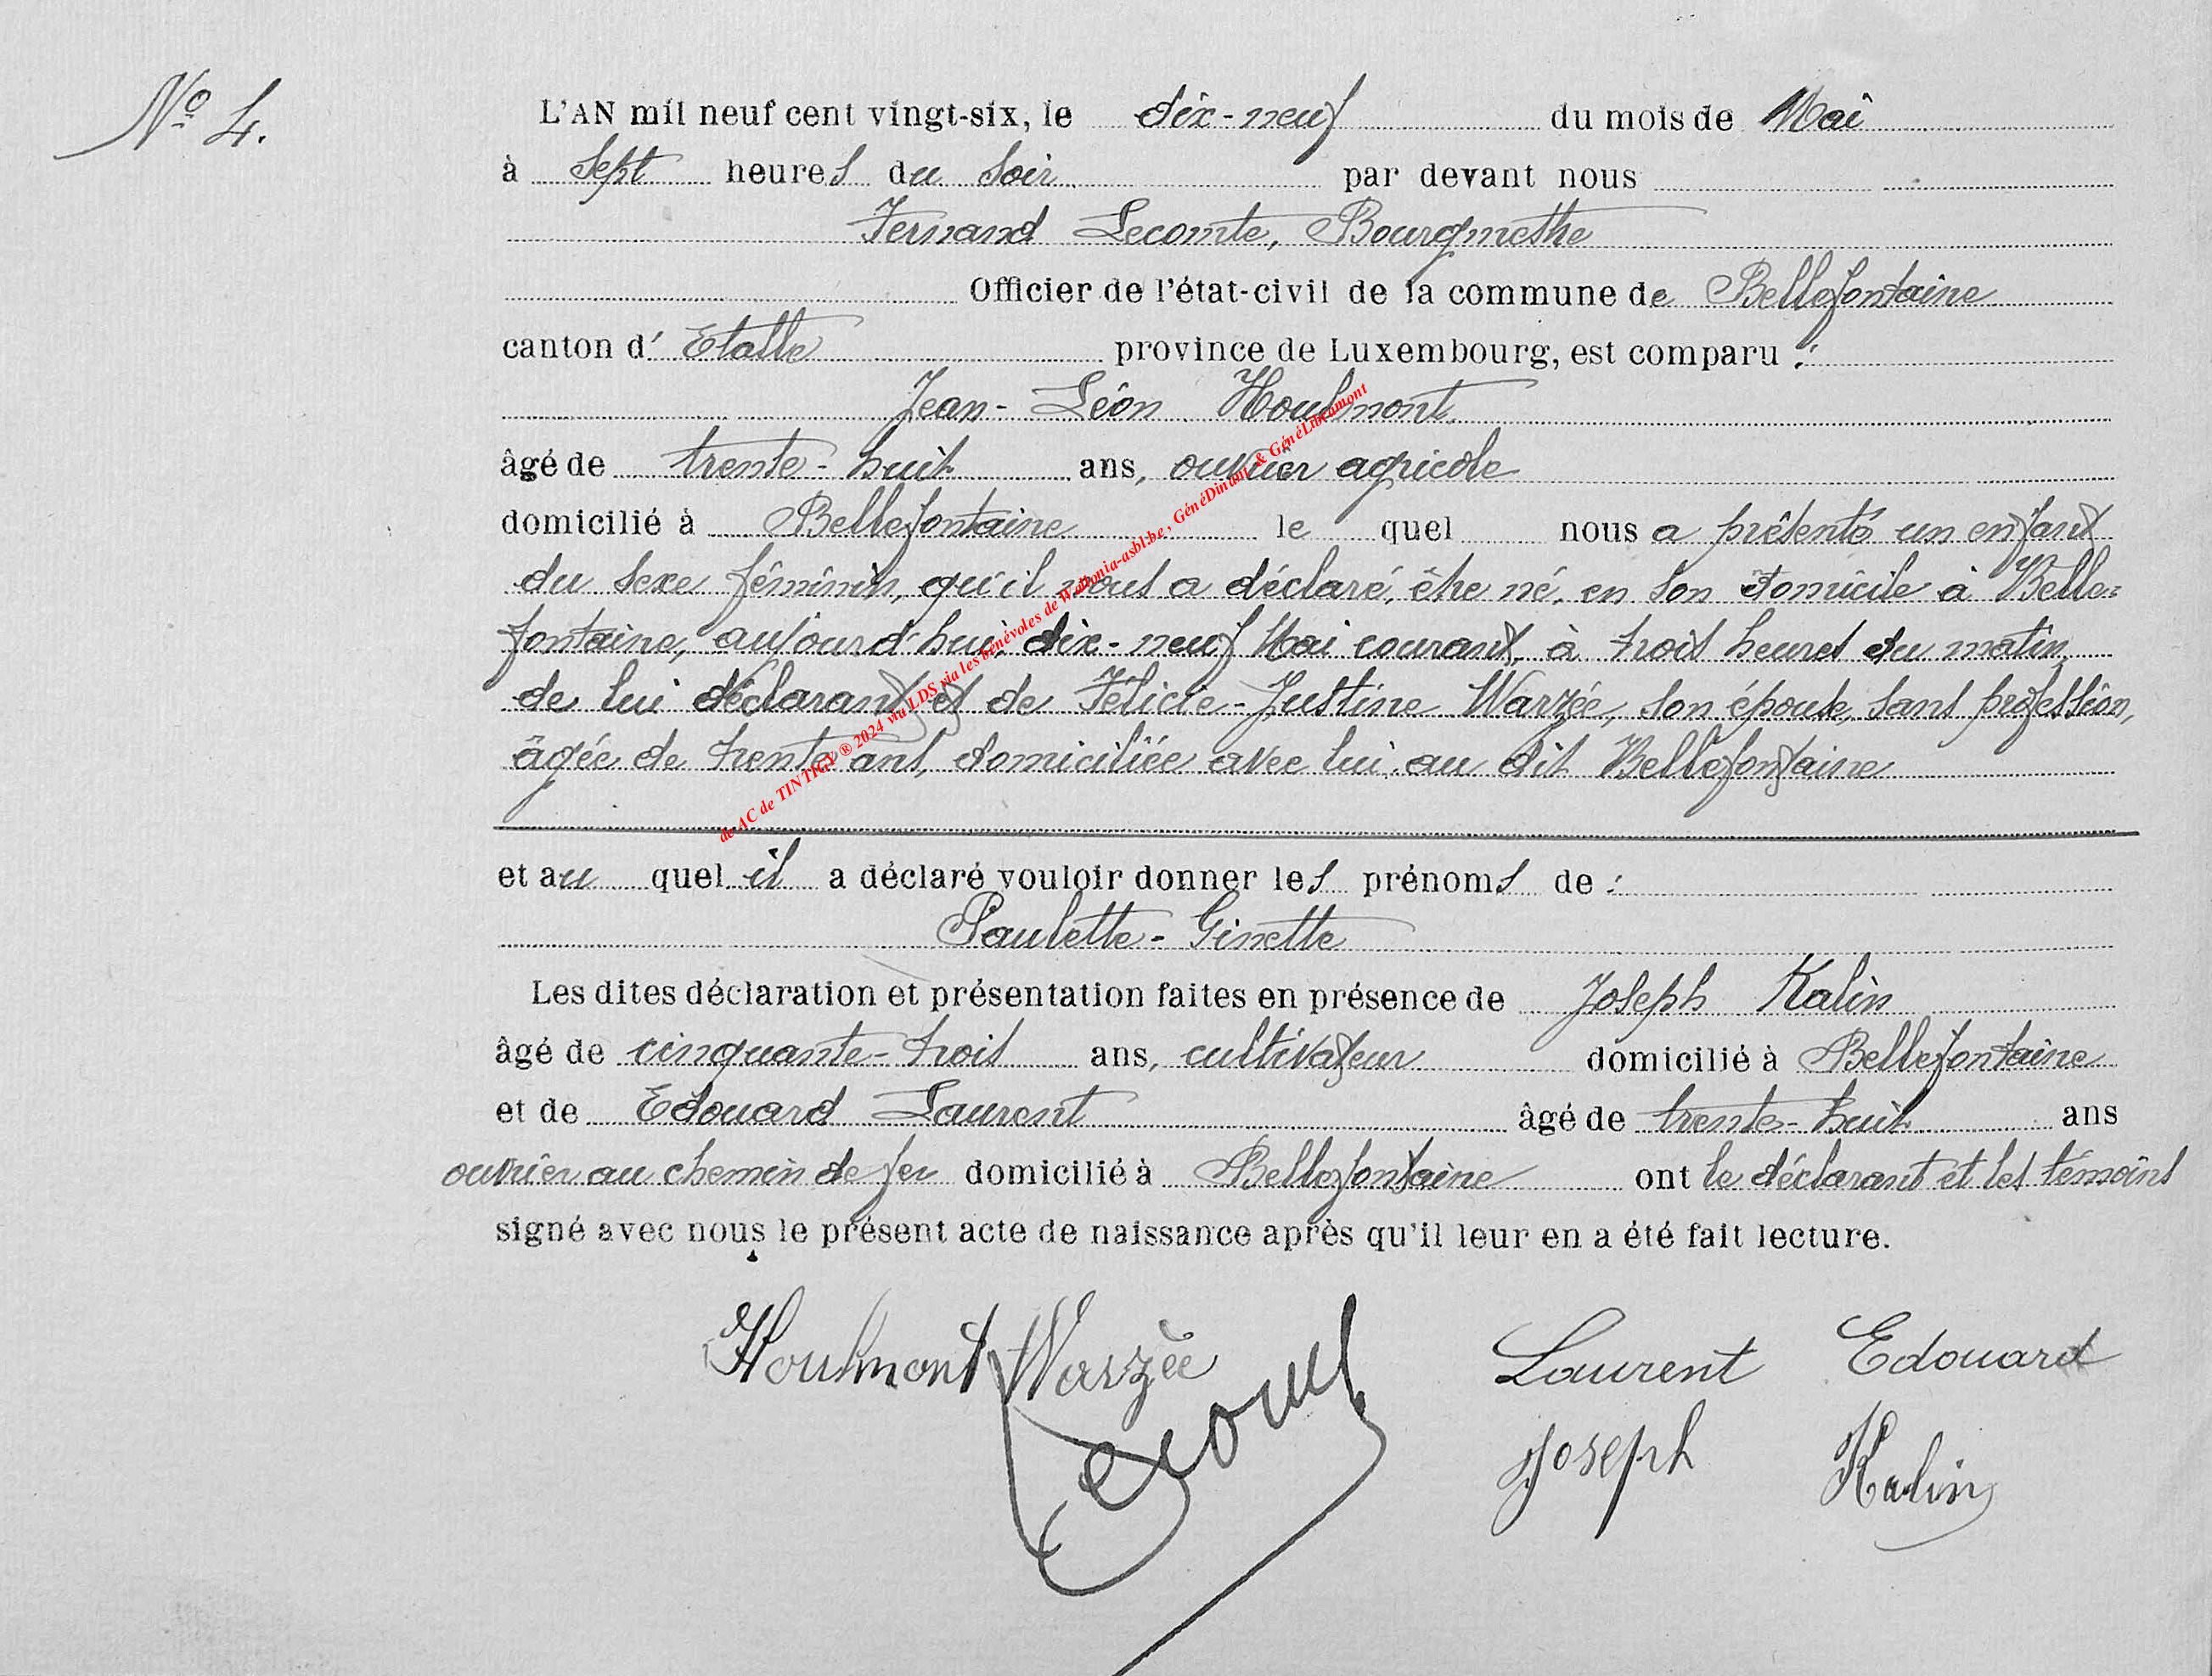 N° 4.
L'AN mil neuf cent vingt-six, le dix-neuf du mois de Mai
à sept heures du soir par devant nous
Fernand Lecomte, Bourgmestre
Officier de l'état-civil de la commune de Bellefontaine
canton d' Etalle province de Luxembourg, est comparu :
Jean-Léon Houlmont
âgé de trente-huit ans, ouvrier agricole
domicilié à Bellefontaine le quel nous a présenté un enfant
du sexe féminin, qu'il nous a déclaré, être né, en son domicile à Belle=
fontaine, aujourd'hui, dix-neuf Mai courant, à trois heures du matin
de lui déclarant et de Félicie-Justine Warzée, son épouse, sans profession,
âgée de trente ans, domiciliée avec lui au dit Bellefontaine
et au quel il a déclaré vouloir donner les prénoms de :
Paulette-Ginette
Les dites déclaration et présentation faites en présence de Joseph Kalin
âgé de cinquante-trois ans, cultivateur domicilié à Bellefontaine
et de Edouard Laurent âgé de trente-huit ans
ouvrier au chemin de fer domicilié à Bellefontaine ont le déclarant et les témoins
signé avec nous le présent acte de naissance après qu'il leur en a été fait lecture.
Houlmont Warzée Laurent Edouard
Lecomte Joseph Kalin
de AC de TINTIGY ® 2024 via LDS via les bénévoles de Wallonia-asbl.be, GénéDinant & GénéLibramont